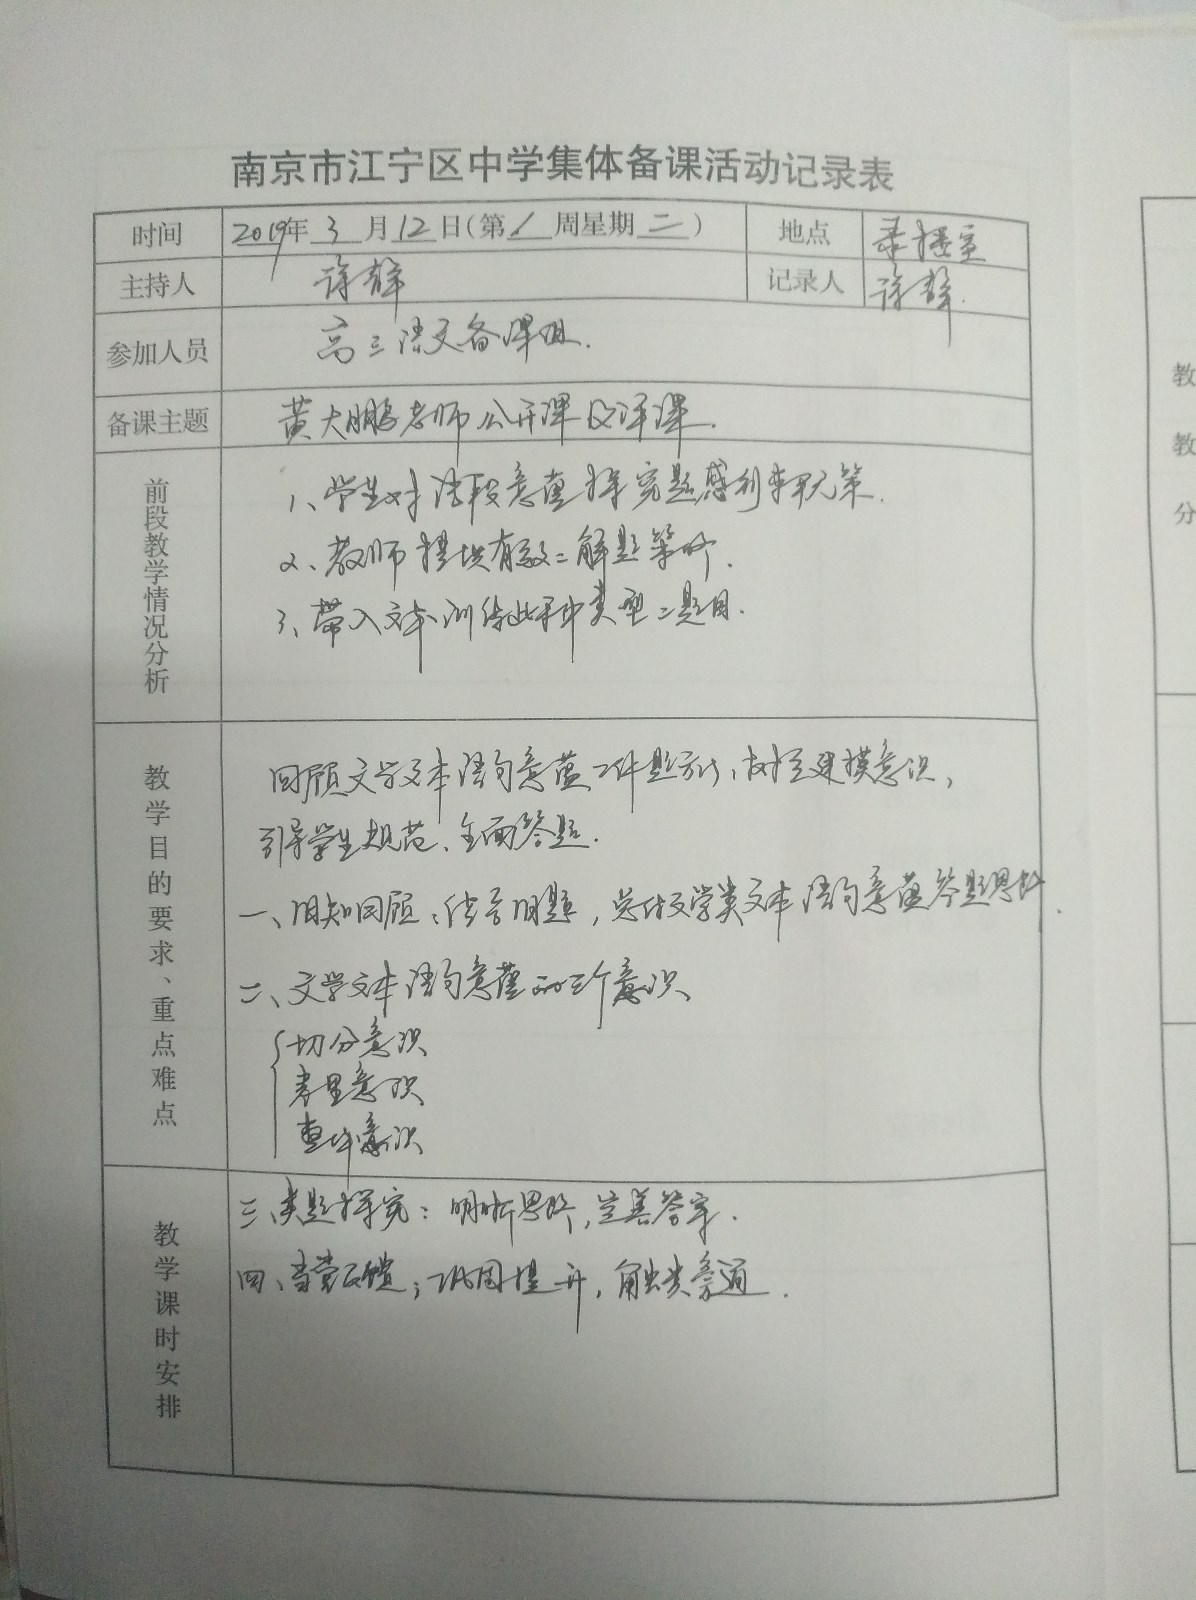 南京市江宁区中学集体备课活动记录表
时间 2019年 3 月 12 日(第 / 周星期 二 ) 地点 录播室
主持人 徐静 记录人 徐静.
参加人员 高三语文备课组.
备课主题 黄大鹏老师公开课及评课.
前段教学情况分析
1、学生对语段意蕴探究题感到束手无策.
2、教师提供有效的解题策略.
3、带入文本,训练此种类型的题目.
教学目的要求、重点难点
回顾文学文本语句意蕴的解题方法,树立建模意识,
引导学生规范、全面答题.
一、旧知回顾:结合旧题,总结文学类文本语句意蕴答题思路.
二、文学文本语句意蕴的三个意识
切分意识
意识
意识
教学课时安排
三、类题探究:明晰思路,完善答案.
四、当堂反馈:巩固提升,触类旁通.
教
教
分